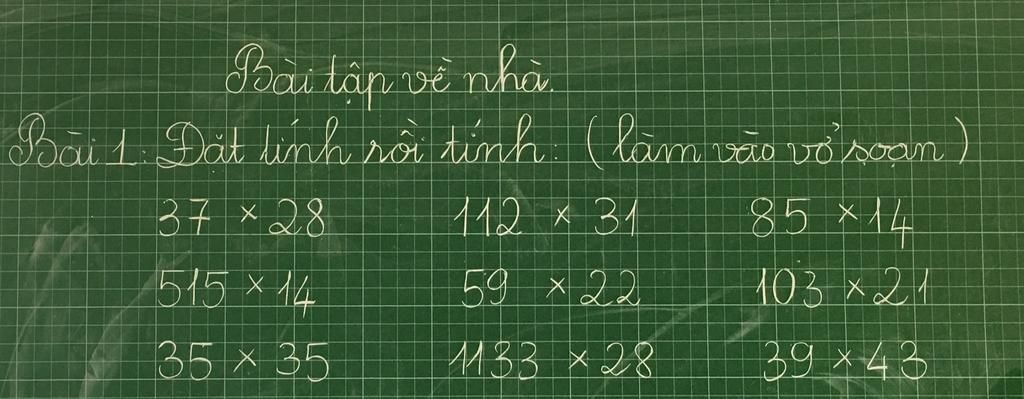 Bài tập về nhà.
Bài 1: Đặt tính rồi tính: (làm vào vở soạn)
37 × 28 112 × 31 85 × 14
515 × 14 59 × 22 103 × 21
35 × 35 1133 × 28 39 × 43